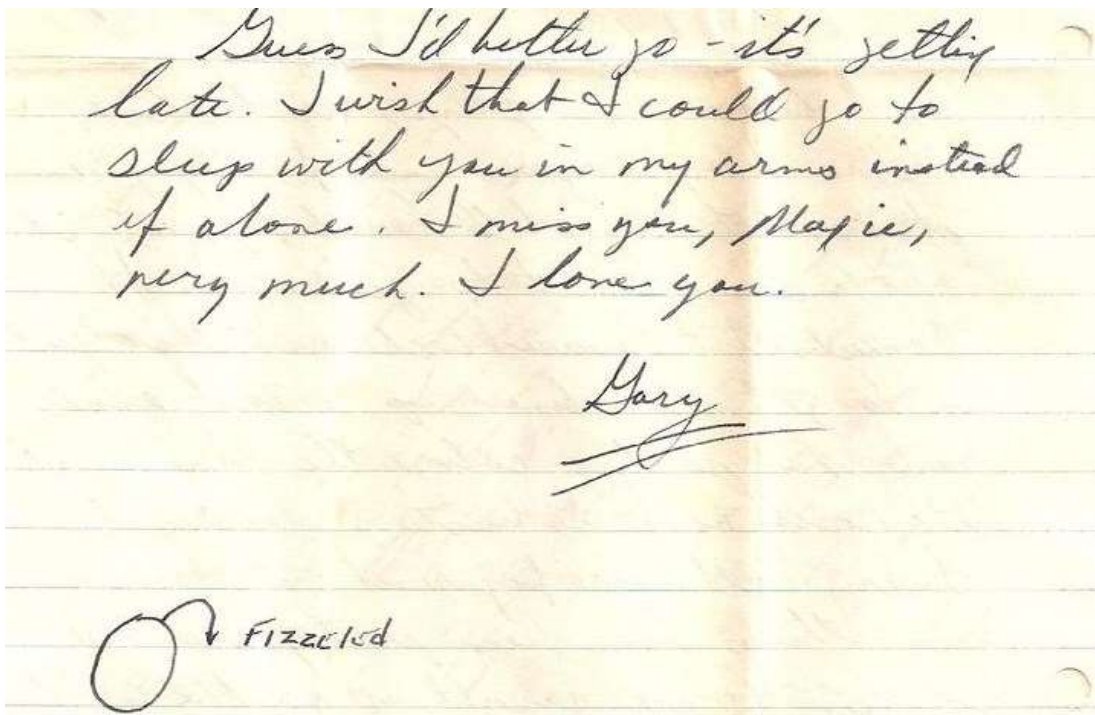 Guess I'd better go - it's getting
late. I wish that I could go to
sleep with you in my arms instead
of alone. I miss you, Magic,
very much. I love you.
Gary
FIZZELED